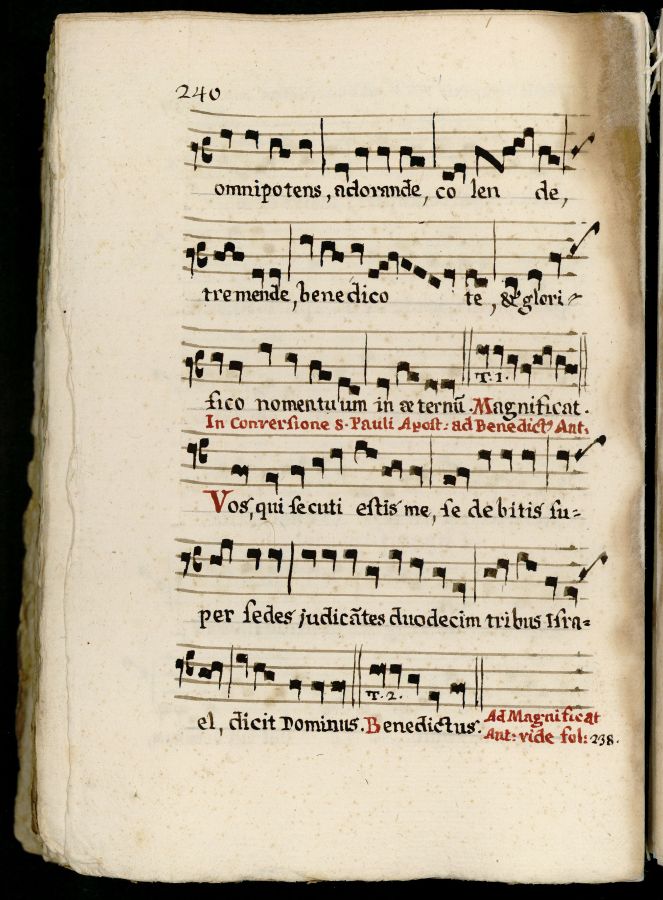 240
omnipotens, adorande, co len de,
tremende, benedico te, & glori=
fico nomen tuum in æternũ. Magnificat.
T. 1.
In Conversione S. Pauli Apost: ad Benedictˢ Ant:
Vos, qui secuti estis me, sedebitis su=
per sedes judicãtes duodecim tribus Isra=
el, dicit Dominus. Benedictus.
T. 2.
Ad Magnificat
Ant: vide fol: 238.